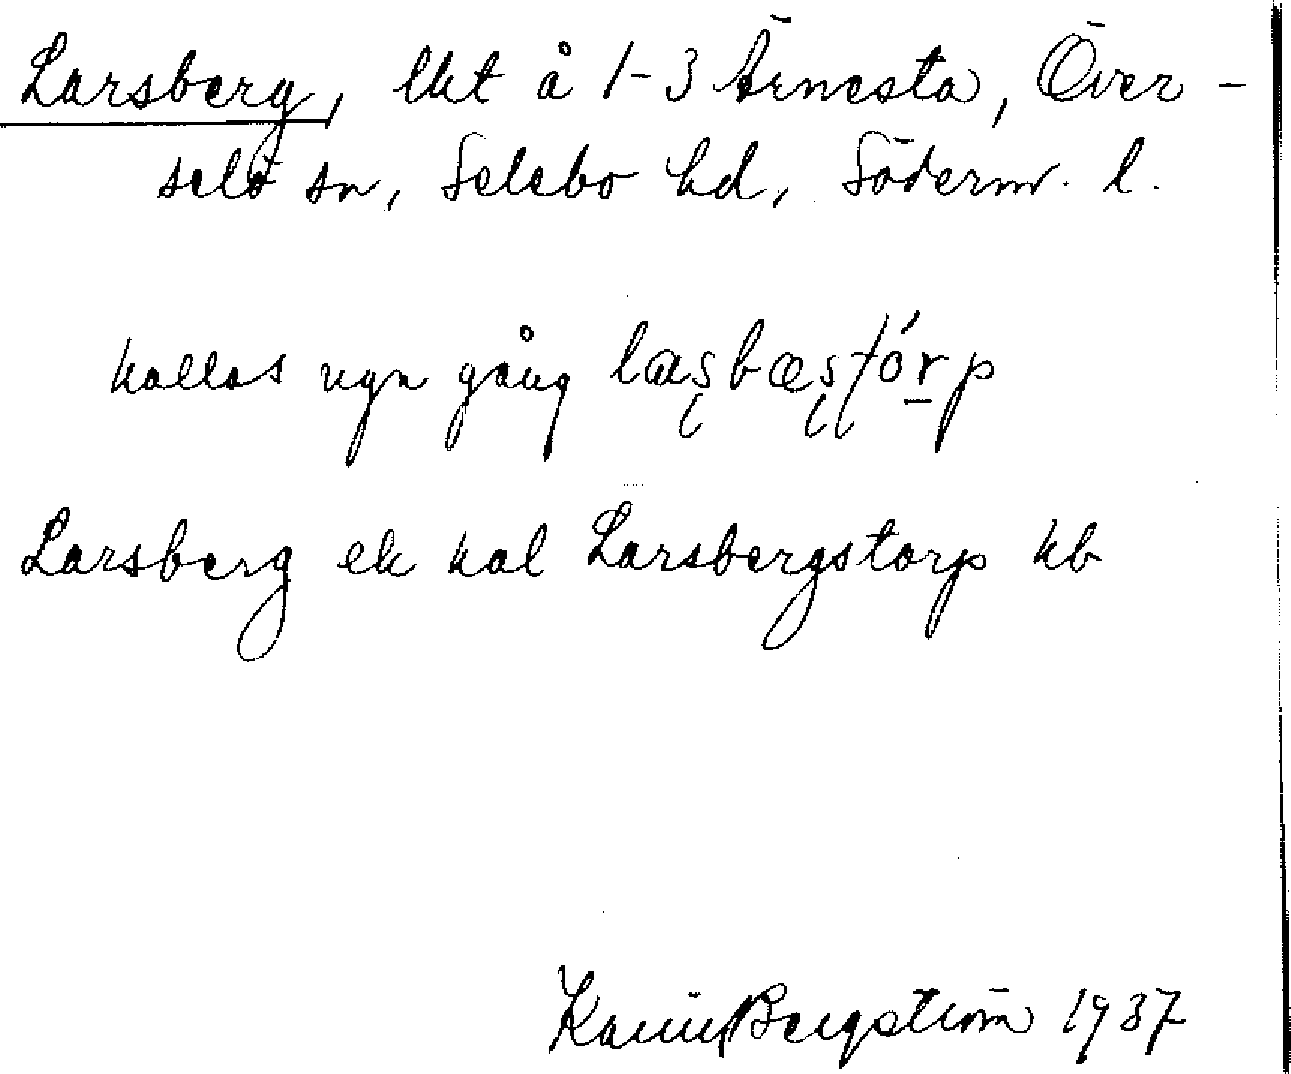 Larsberg, lht å 1-3 Ärnesta, Över-
selö sn, Selebo hd, Söderm. l.
kallas ngn gång
Larsberg ek kal Larsbergstorp kb
Karin Bergström 1937